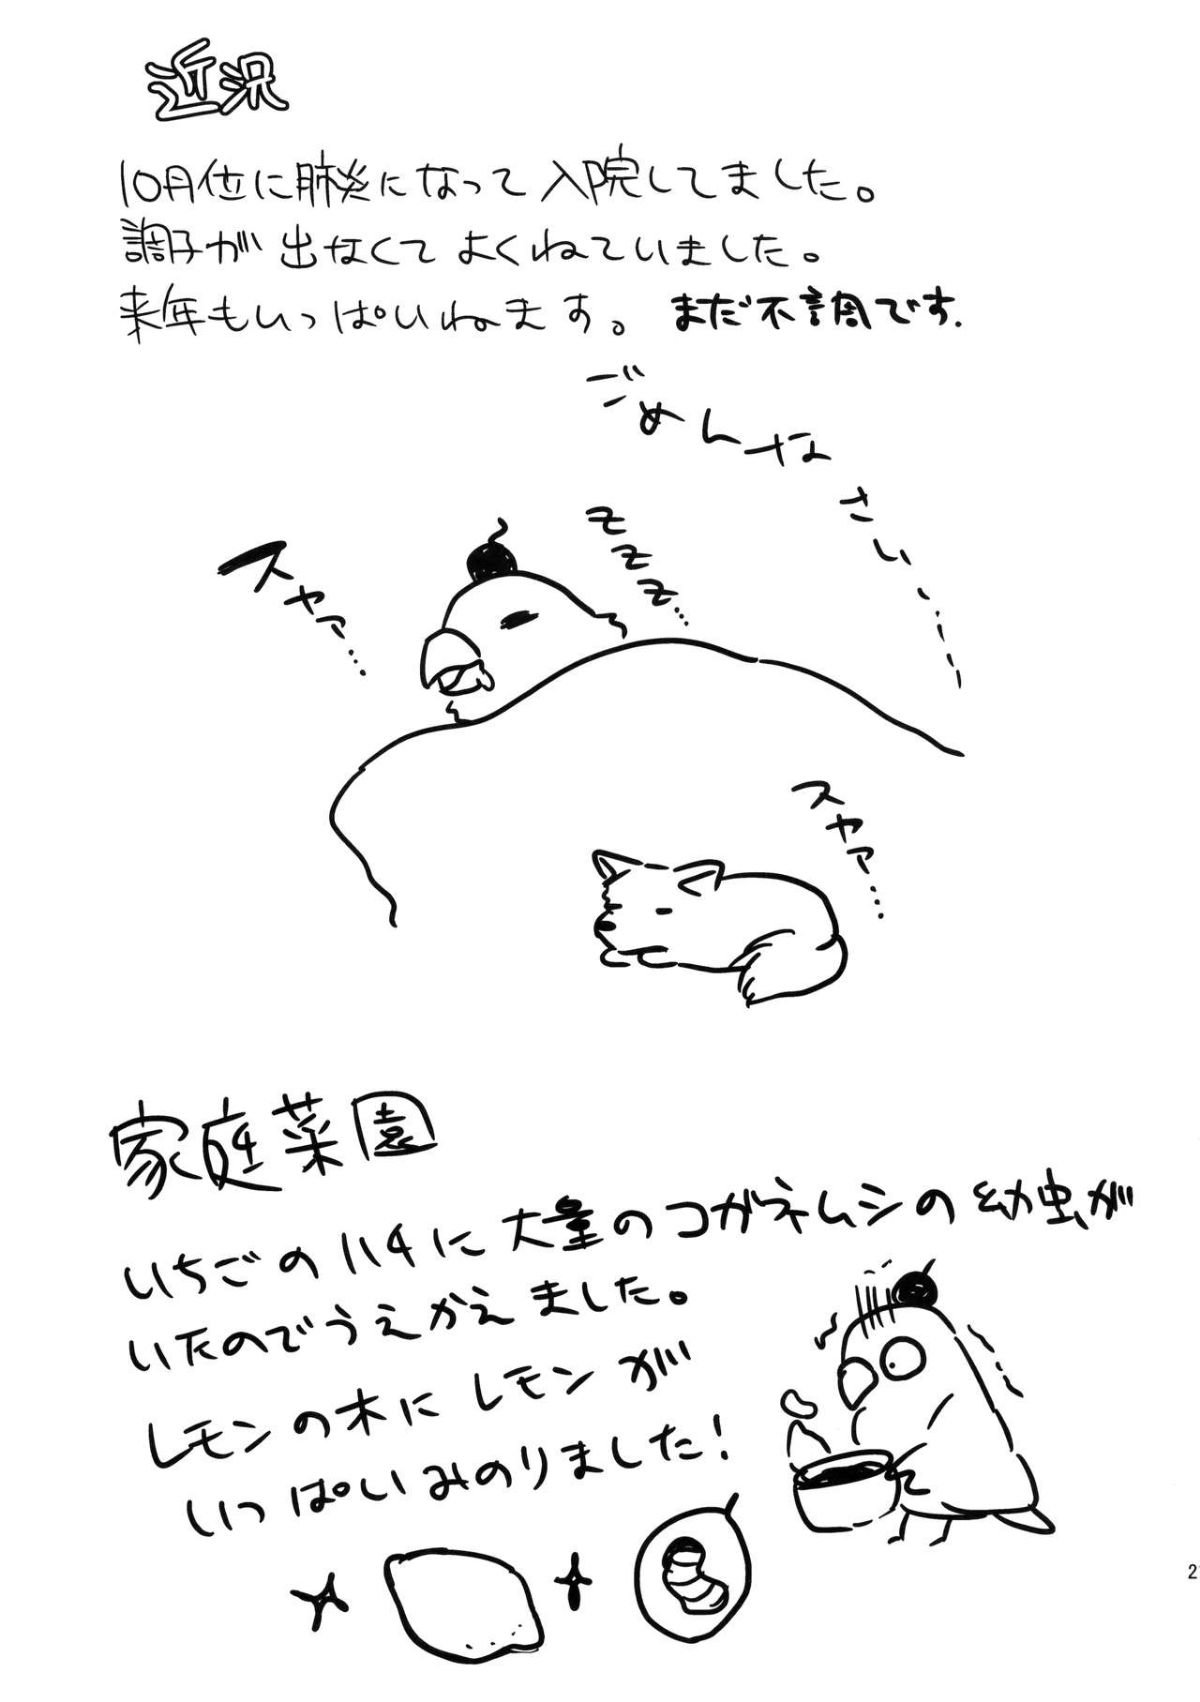 近況
10月位に肺炎になって入院してました。
調子が出なくてよくねていました。
来年もいっぱいねます。まだ不調です.
ごめんなさい...
zzz...
スヤァ...
スヤァ...
家庭菜園
いちごのハチに大量のコガネムシの幼虫が
いたのでうえかえました。
レモンの木にレモンが
いっぱいみのりました!
2